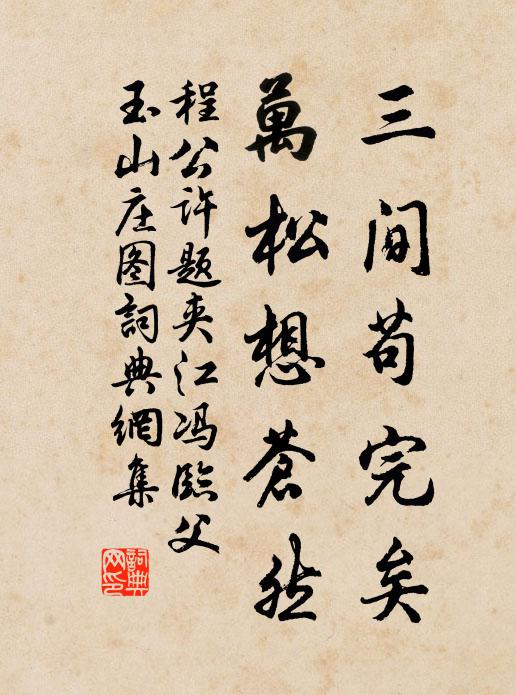 三間苟完矣
萬松想蒼然
程公许题夹江冯臨父
玉山庄图詞典網集
詞典网印